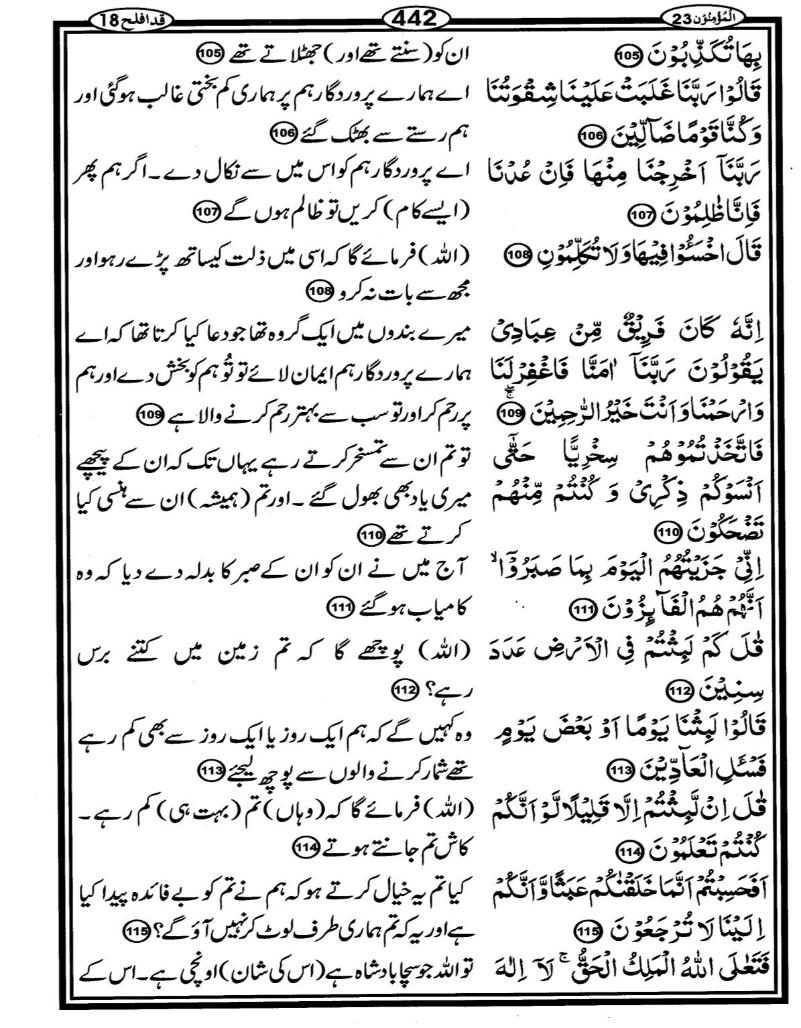 اَلْمُؤْمِنُوْن 23
442
قد افلح 18
بِهَا تُكَذِّبُوْنَ 105
قَالُوْا رَبَّنَا غَلَبَتْ عَلَيْنَا شِقْوَتُنَا
وَكُنَّا قَوْمًا ضَآلِّيْنَ 106
رَبَّنَآ اَخْرِجْنَا مِنْهَا فَاِنْ عُدْنَا
فَاِنَّا ظٰلِمُوْنَ 107
قَالَ اخْسَئُوْا فِيْهَا وَلَا تُكَلِّمُوْنِ 108
اِنَّهٗ كَانَ فَرِيْقٌ مِّنْ عِبَادِيْ
يَقُوْلُوْنَ رَبَّنَآ اٰمَنَّا فَاغْفِرْ لَنَا
وَارْحَمْنَا وَاَنْتَ خَيْرُ الرّٰحِمِيْنَ 109
فَاتَّخَذْتُمُوْهُمْ سِخْرِيًّا حَتّٰٓى
اَنْسَوْكُمْ ذِكْرِيْ وَ كُنْتُمْ مِّنْهُمْ
تَضْحَكُوْنَ 110
اِنِّيْ جَزَيْتُهُمُ الْيَوْمَ بِمَا صَبَرُوْٓا ۙ
اَنَّهُمْ هُمُ الْفَآئِزُوْنَ 111
قٰلَ كَمْ لَبِثْتُمْ فِي الْاَرْضِ عَدَدَ
سِنِيْنَ 112
قَالُوْا لَبِثْنَا يَوْمًا اَوْ بَعْضَ يَوْمٍ
فَسْئَلِ الْعَآدِّيْنَ 113
قٰلَ اِنْ لَّبِثْتُمْ اِلَّا قَلِيْلًا لَّوْ اَنَّكُمْ
كُنْتُمْ تَعْلَمُوْنَ 114
اَفَحَسِبْتُمْ اَنَّمَا خَلَقْنٰكُمْ عَبَثًا وَّاَنَّكُمْ
اِلَيْنَا لَا تُرْجَعُوْنَ 115
فَتَعٰلَى اللّٰهُ الْمَلِكُ الْحَقُّ ۚ لَآ اِلٰهَ
ان کو (سنتے تھے اور) جھٹلاتے تھے 105
اے ہمارے پروردگار ہم پر ہماری کم بختی غالب ہو گئی اور
ہم رستے سے بھٹک گئے 106
اے پروردگار ہم کو اس میں سے نکال دے۔ اگر ہم پھر
(ایسے کام) کریں تو ظالم ہوں گے 107
(اللہ) فرمائے گا کہ اسی میں ذلت کیساتھ پڑے رہو اور
مجھ سے بات نہ کرو 108
میرے بندوں میں ایک گروہ تھا جو دعا کیا کرتا تھا کہ اے
ہمارے پروردگار ہم ایمان لائے تو تُو ہم کو بخش دے اور ہم
پر رحم کر اور تو سب سے بہتر رحم کرنے والا ہے 109
تو تم ان سے تمسخر کرتے رہے یہاں تک کہ ان کے پیچھے
میری یاد بھی بھول گئے ۔ اور تم (ہمیشہ) ان سے ہنسی کیا
کرتے تھے 110
آج میں نے ان کو ان کے صبر کا بدلہ دے دیا کہ وہ
کامیاب ہو گئے 111
(اللہ) پوچھے گا کہ تم زمین میں کتنے برس
رہے؟ 112
وہ کہیں گے کہ ہم ایک روز یا ایک روز سے بھی کم رہے
تھے شمار کرنے والوں سے پوچھ لیجئے 113
(اللہ) فرمائے گا کہ (وہاں) تم (بہت ہی) کم رہے ۔
کاش تم جانتے ہوتے 114
کیا تم یہ خیال کرتے ہو کہ ہم نے تم کو بے فائدہ پیدا کیا
ہے اور یہ کہ تم ہماری طرف لوٹ کر نہیں آؤ گے؟ 115
تو اللہ جو سچا بادشاہ ہے (اس کی شان) اونچی ہے۔ اس کے